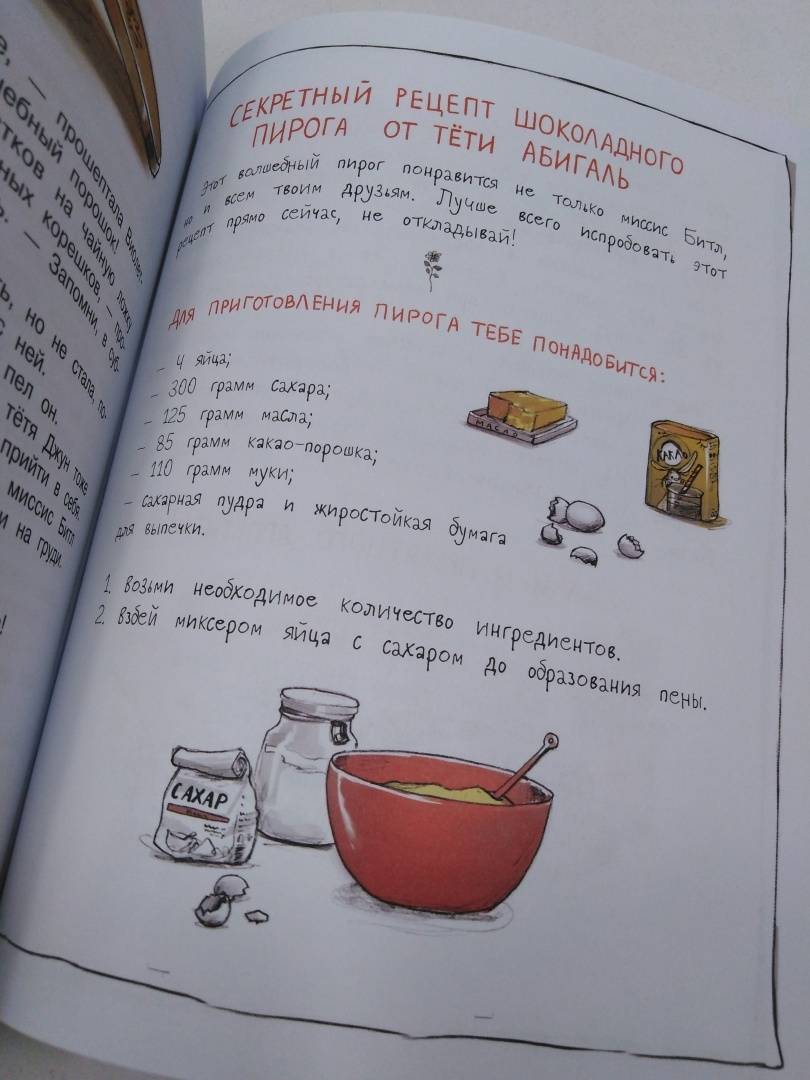 е, — прошептала Виолет.
чебный порошок!
тков на чайную ложку
ных корешков, — про-
ь. — Запомни, в суб-
ть, но не стала, по-
с ней.
пел он.
тётя Джун тоже
прийти в себя.
миссис Битл
и на груди.
!
СЕКРЕТНЫЙ РЕЦЕПТ ШОКОЛАДНОГО
ПИРОГА ОТ ТЁТИ АБИГАЛЬ
Этот волшебный пирог понравится не только миссис Битл,
но и всем твоим друзьям. Лучше всего испробовать этот
рецепт прямо сейчас, не откладывай!
ДЛЯ ПРИГОТОВЛЕНИЯ ПИРОГА ТЕБЕ ПОНАДОБИТСЯ:
– 4 яйца;
– 300 грамм сахара;
– 125 грамм масла;
– 85 грамм какао-порошка;
– 110 грамм муки;
– сахарная пудра и жиростойкая бумага
для выпечки.
МАСЛО
КАКАО
1. Возьми необходимое количество ингредиентов.
2. Взбей миксером яйца с сахаром до образования пены.
САХАР